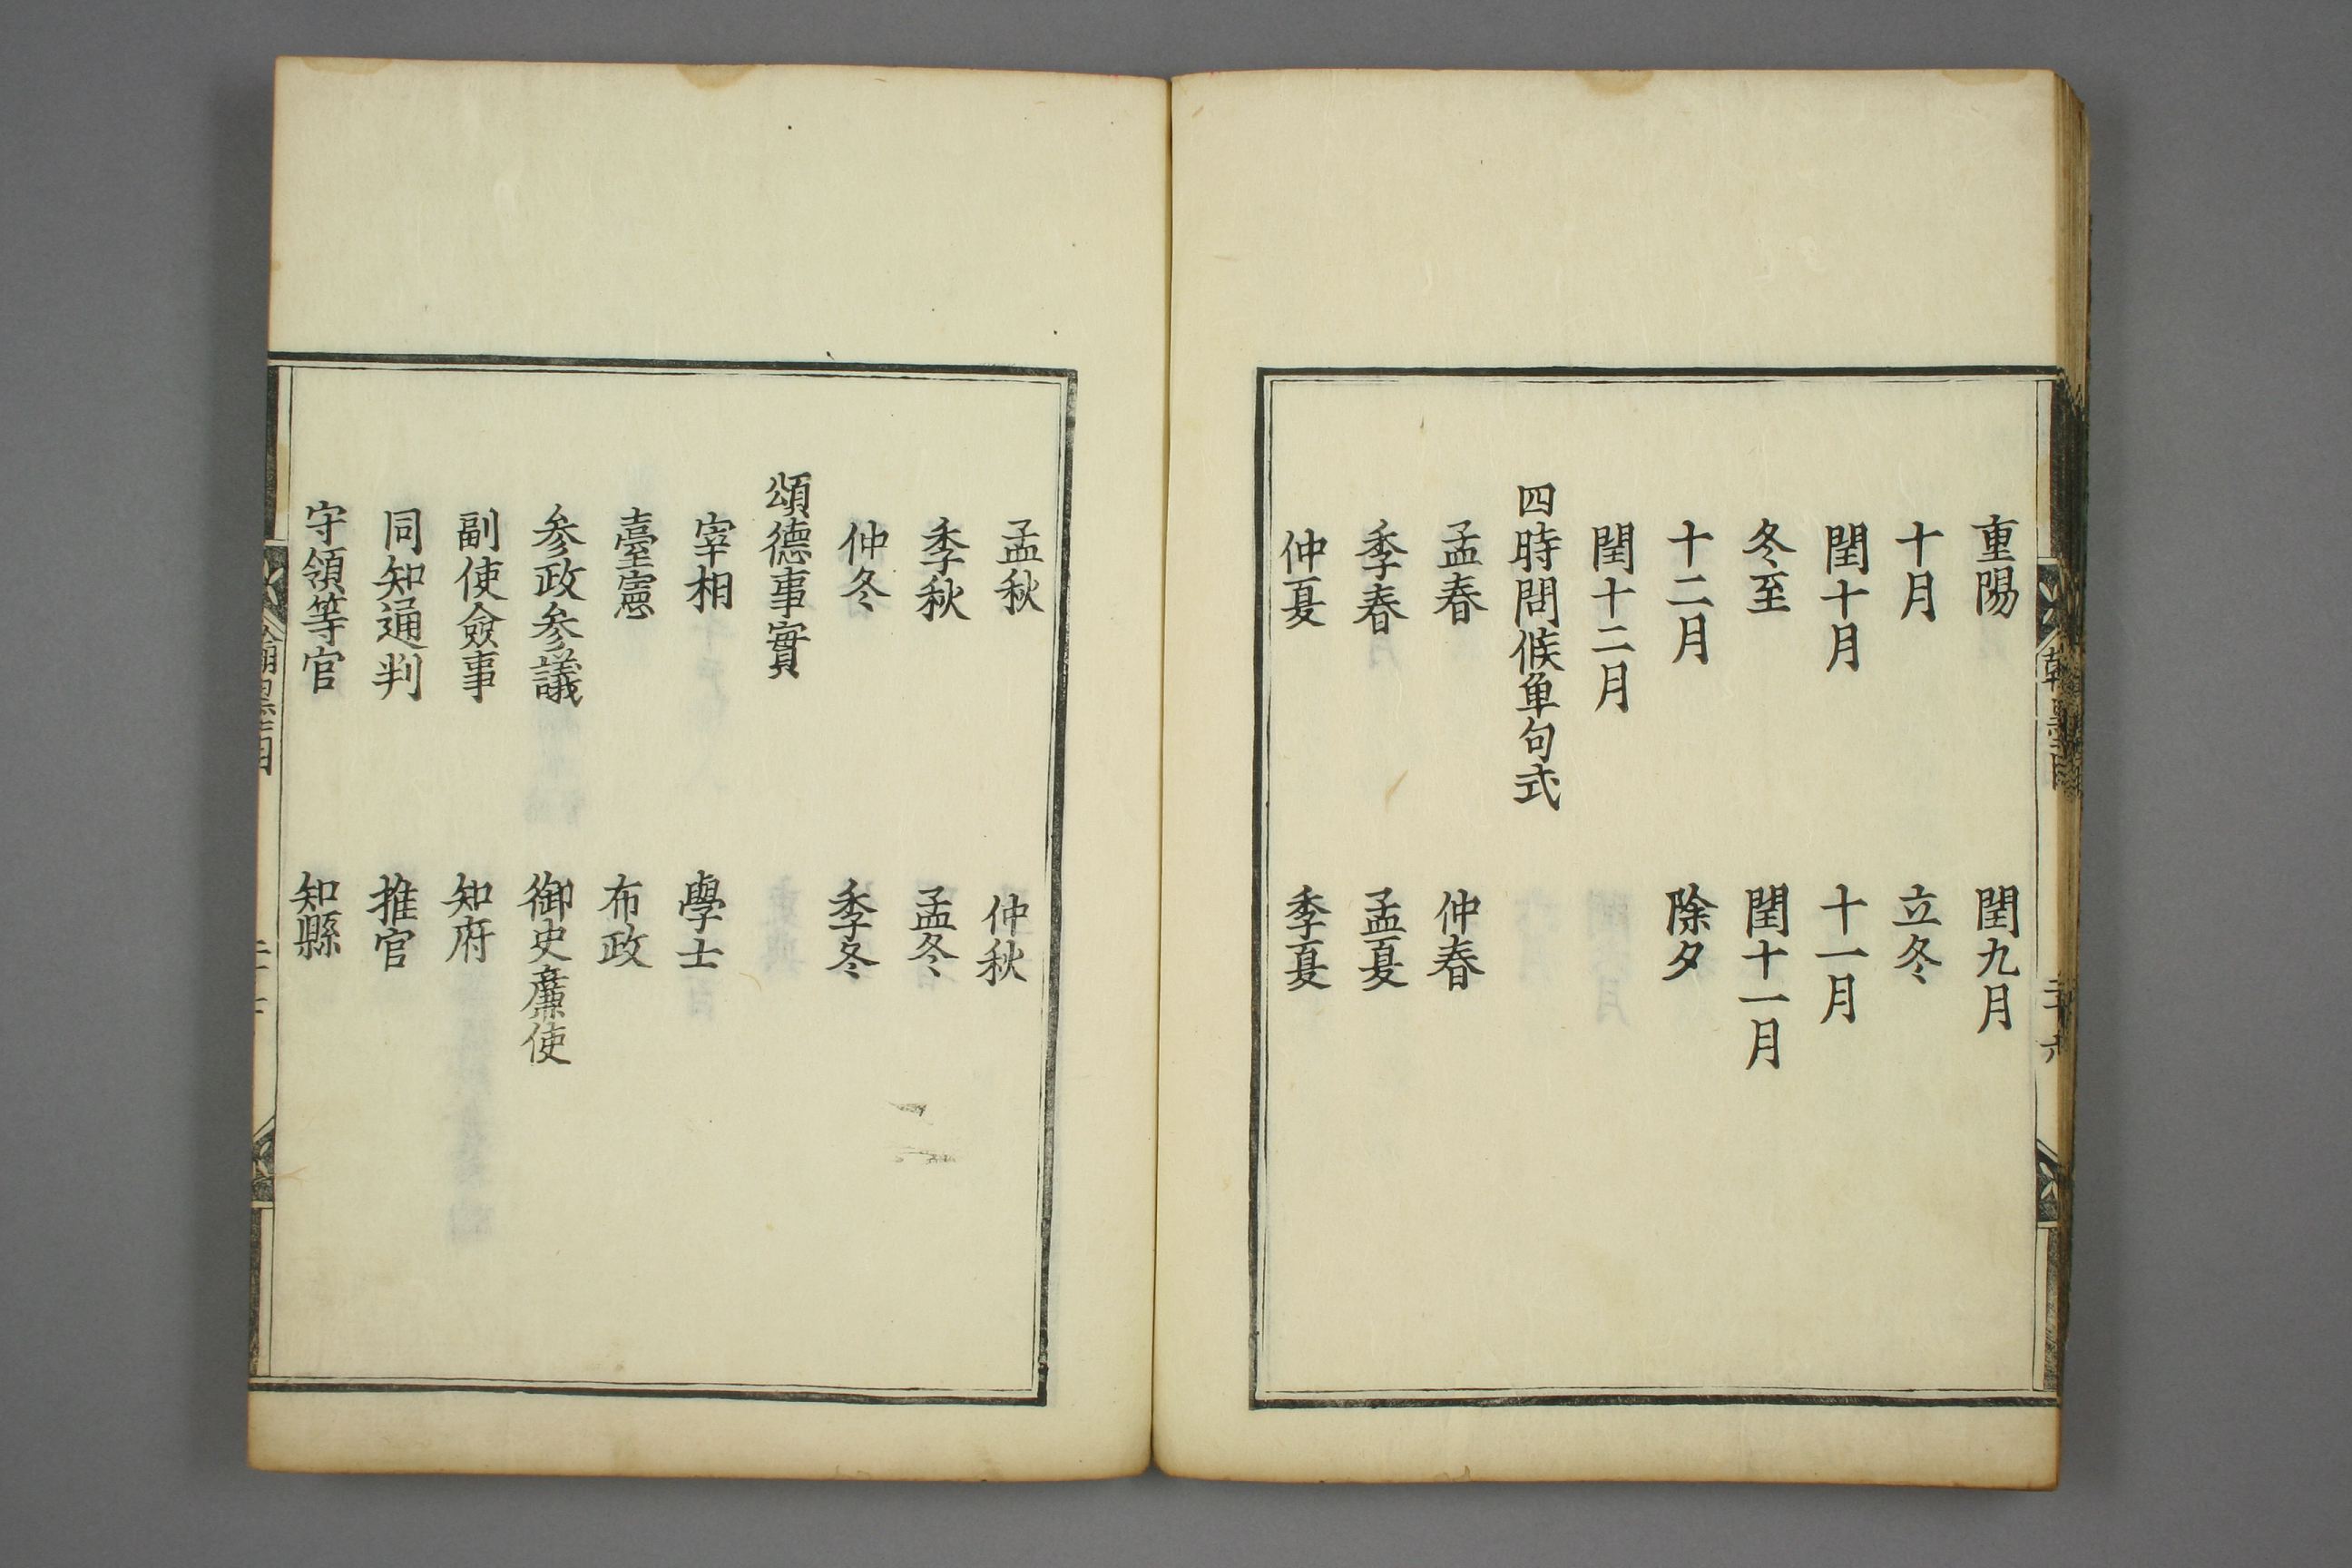 重陽　閏九月
十月　立冬
閏十月　十一月
冬至　閏十一月
十二月　除夕
閏十二月
四時問候単句式
孟春　仲春
季春　孟夏
仲夏　季夏
孟秋　仲秋
季秋　孟冬
仲冬　季冬
頌德事實
宰相　學士
臺憲　布政
参政参議　御史廉使
副使僉事　知府
同知通判　推官
守領等官　知縣